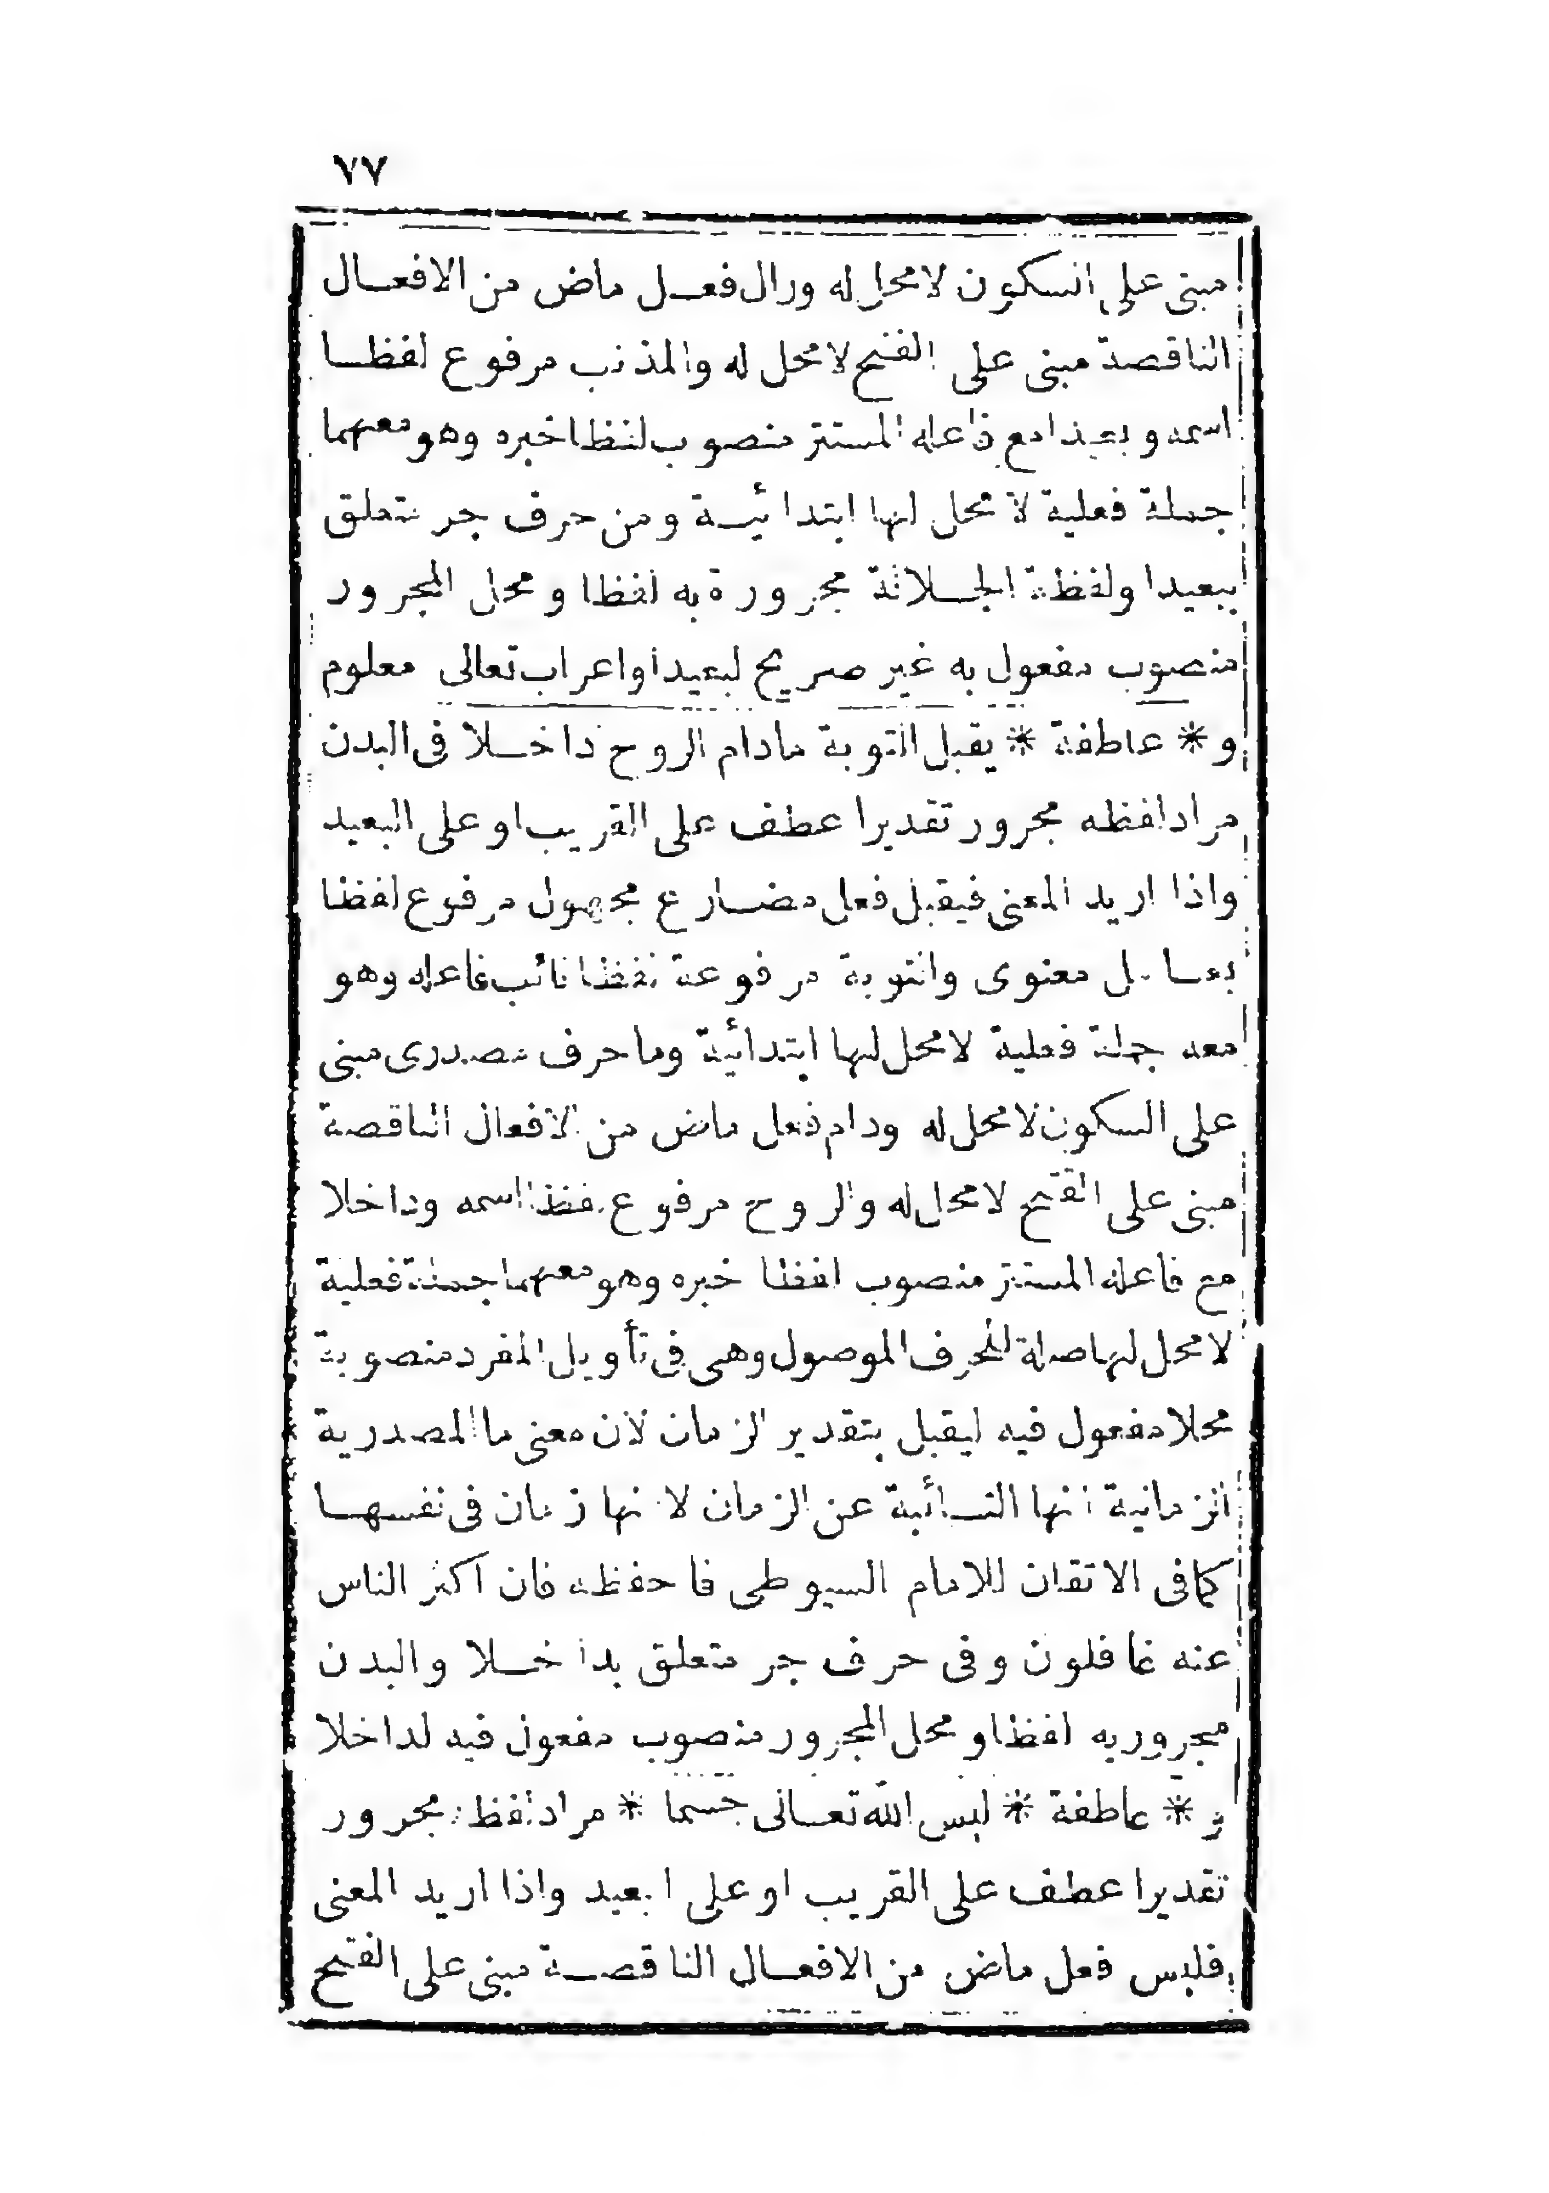 ٧٧
مبنى على السكون لا محل له وزال فعل ماض من الافعال
الناقصة مبنى على الفتح لا محل له والمذنب مرفوع لفظا
اسمه وبعيدا مع فاعله المستتر منصوب لفظا خبره وهو معهما
جملة فعلية لا محل لها ابتدائية ومن حرف جر متعلق
ببعيدا ولفظة الجلالة مجرورة به لفظا ومحل المجرور
منصوب مفعول به غير صريح لبعيدا واعراب تعالى معلوم
و * عاطفة * يقبل التوبة مادام الروح داخلا فى البدن
مراد لفظه مجرور تقديرا عطف على القريب او على البعيد
واذا اريد المعنى فيقبل فعل مضارع مجهول مرفوع لفظا
بعامل معنوى والتوبة مرفوعة لفظا نائب فاعله وهو
معه جملة فعلية لا محل لها ابتدائية وما حرف مصدرى مبنى
على السكون لا محل له ودام فعل ماض من الافعال الناقصة
مبنى على الفتح لا محل له والروح مرفوع لفظا اسمه وداخلا
مع فاعله المستتر منصوب لفظا خبره وهو معهما جملة فعلية
لا محل لها صلة للحرف الموصول وهى فى تأويل المفرد منصوبة
محلا مفعول فيه ليقبل بتقدير الزمان لان معنى ما المصدرية
الزمانية انها النائبة عن الزمان لا انها زمان فى نفسها
كما فى الاتقان للامام السيوطى فاحفظه فان اكثر الناس
عنه غافلون وفى حرف جر متعلق بداخلا والبدن
مجرور به لفظا ومحل المجرور منصوب مفعول فيه لداخلا
و * عاطفة * ليس الله تعالى جسما * مراد لفظه مجرور
تقديرا عطف على القريب او على البعيد واذا اريد المعنى
فليس فعل ماض من الافعال الناقصة مبنى على الفتح